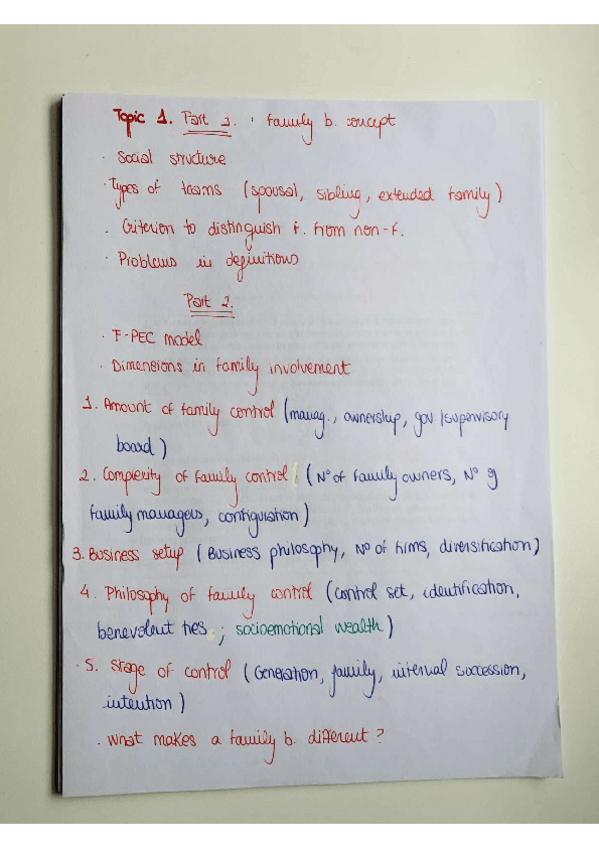 Topic 1. Part 1. : family b. concept
· Social structure
· Types of teams (spousal, sibling, extended family)
· Criterion to distinguish f. from non-f.
· Problems in definitions
Part 2.
· F-PEC model
· Dimensions in family involvement
1. Amount of family control (manag., ownership, gov./supervisory
board)
2. Complexity of family control (Nº of family owners, Nº of
family managers, configuration)
3. Business setup (Business philosophy, Nº of firms, diversification)
4. Philosophy of family control (control set, identification,
benevolent ties ; socioemotional wealth)
· 5. Stage of control (Generation, family, internal succession,
intention)
· What makes a family b. different?